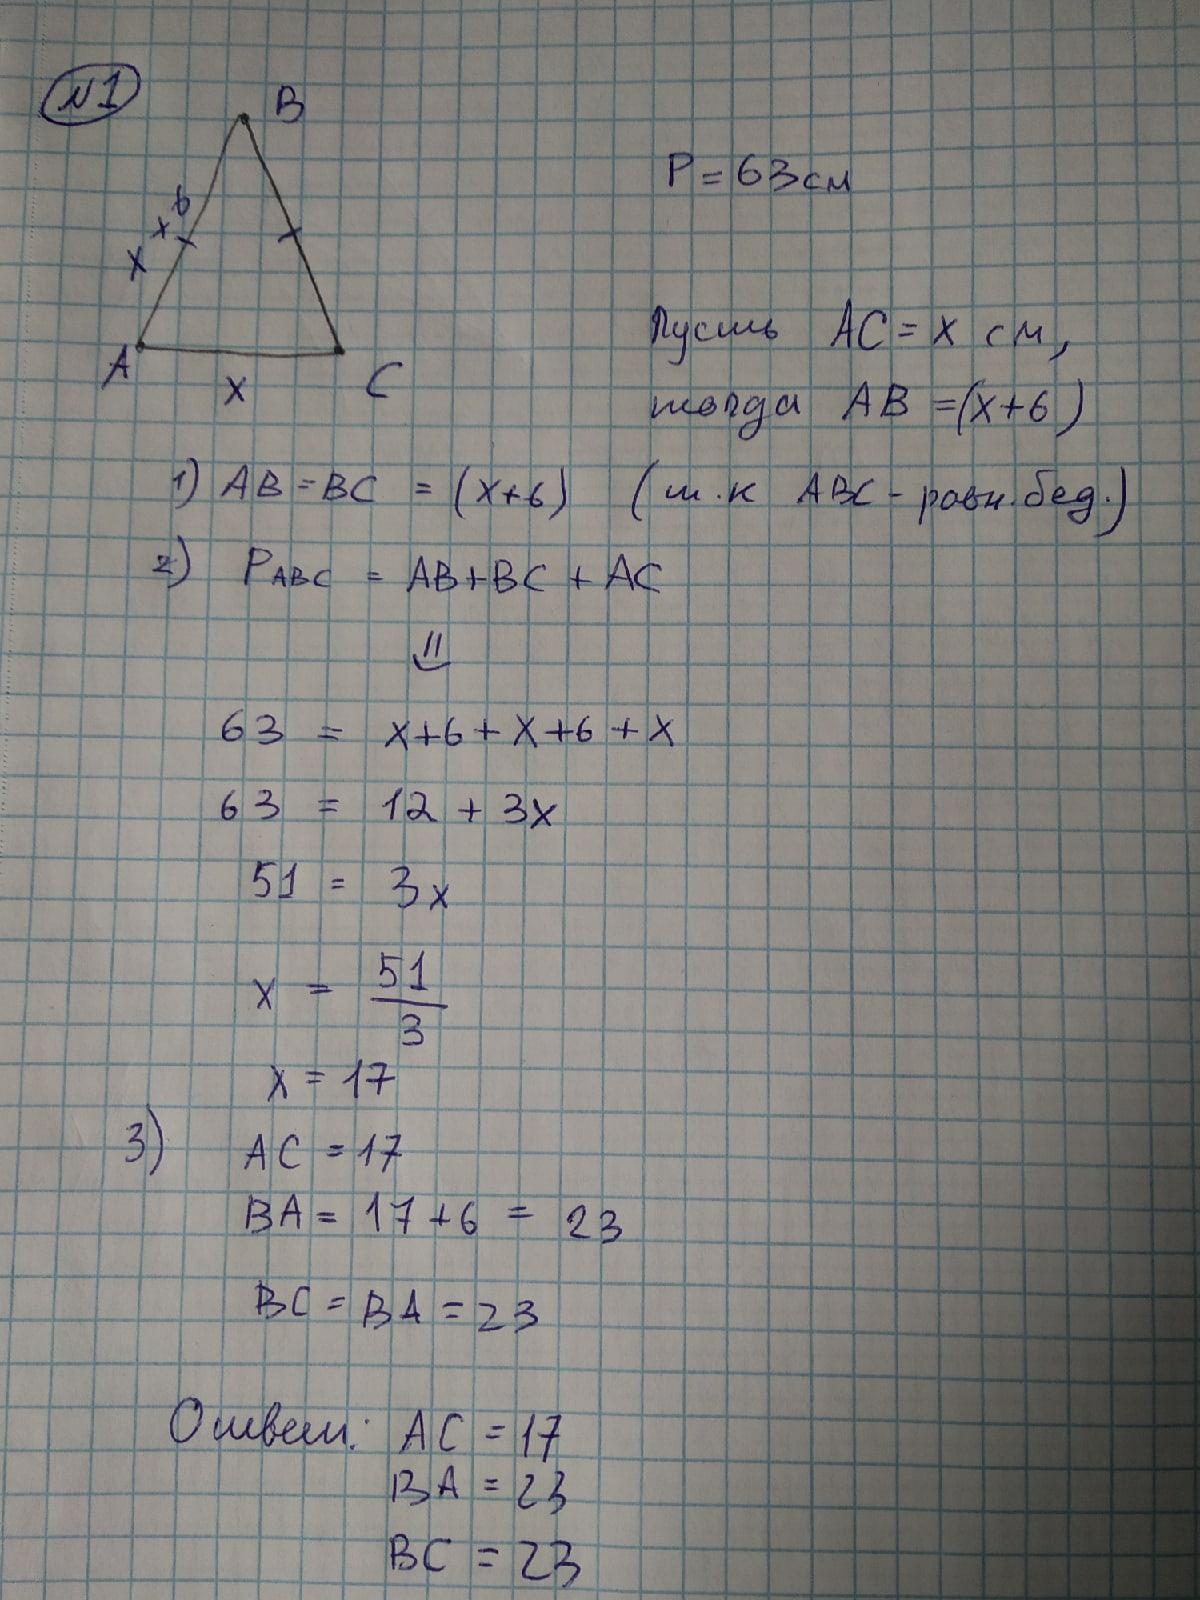 №1
B
P = 63 см
6
x
x
A
x
C
Пусть AC = x см,
тогда AB = (x+6)
1) AB = BC = (x+6) (т.к ABC - равн.бед.)
2) PABC = AB + BC + AC
63 = x+6 + x+6 + x
63 = 12 + 3x
51 = 3x
x = 51/3
x = 17
3) AC = 17
BA = 17+6 = 23
BC = BA = 23
Ответ: AC = 17
BA = 23
BC = 23